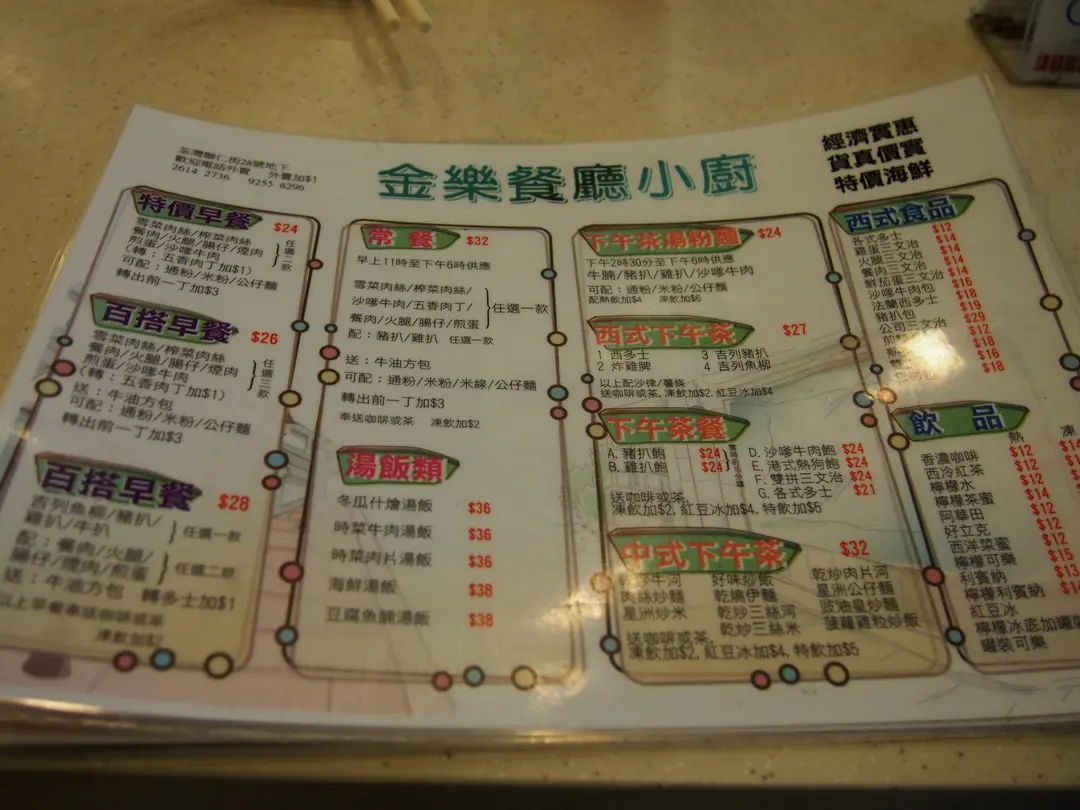 荃灣聯仁街28號地下
歡迎電話外賣 外賣加$1
2614 2736 9255 8296
金樂餐廳小廚
經濟實惠
貨真價實
特價海鮮
特價早餐 $24
雪菜肉絲/榨菜肉絲
餐肉/火腿/腸仔/煙肉
煎蛋/沙嗲牛肉
任選二款
(轉：五香肉丁加$1)
可配：通粉/米粉/公仔麵
轉出前一丁加$3
百搭早餐 $26
雪菜肉絲/榨菜肉絲
餐肉/火腿/腸仔/煙肉
煎蛋/沙嗲牛肉
任選三款
(轉：五香肉丁加$1)
送：牛油方包
可配：通粉/米粉/公仔麵
轉出前一丁加$3
百搭早餐 $28
吉列魚柳/豬扒/
雞扒/牛扒
任選一款
配：餐肉/火腿/
腸仔/煙肉/煎蛋
任選二款
送：牛油方包 轉多士加$1
以上早餐奉送咖啡或茶
凍飲加$2
常餐 $32
早上11時至下午6時供應
雪菜肉絲/榨菜肉絲/
沙嗲牛肉/五香肉丁/
餐肉/火腿/腸仔/煎蛋
任選一款
配：豬扒/雞扒 任選一款
送：牛油方包
可配：通粉/米粉/米線/公仔麵
轉出前一丁加$3
奉送咖啡或茶 凍飲加$2
湯飯類
冬瓜什燴湯飯 $36
時菜牛肉湯飯 $36
時菜肉片湯飯 $36
海鮮湯飯 $38
豆腐魚腩湯飯 $38
下午茶湯粉麵 $24
下午2時30分至下午6時供應
牛腩/豬扒/雞扒/沙嗲牛肉
可配：通粉/米粉/公仔麵
配熱飲加$4 凍飲加$6
西式下午茶 $27
1 西多士 3 吉列豬扒
2 炸雞脾 4 吉列魚柳
以上配沙律/薯條
送咖啡或茶, 凍飲加$2, 紅豆冰加$4
下午茶餐
A. 豬扒飽 $24
B. 雞扒飽 $24
D. 沙嗲牛肉飽 $24
E. 港式熱狗飽 $24
F. 雙拼三文治 $24
G. 各式多士 $21
送咖啡或茶,
凍飲加$2, 紅豆冰加$4, 特飲加$5
中式下午茶 $32
炒牛河 好味炒飯 乾炒肉片河
肉絲炒麵 乾燒伊麵 星洲公仔麵
星洲炒米 乾炒三絲河 豉油皇炒麵
乾炒三絲米 菠蘿雞粒炒飯
送咖啡或茶,
凍飲加$2, 紅豆冰加$4, 特飲加$5
西式食品
各式多士 $12
雞蛋三文治 $14
火腿三文治 $14
餐肉三文治 $14
鮮茄蛋三文治 $16
沙嗲牛肉包 $18
法蘭西多士 $18
豬扒包 $19
公司三文治 $29
$12
$18
$16
$18
飲品
熱 凍
香濃咖啡 $12
西冷紅茶 $12
檸檬水 $12
檸檬茶蜜 $14
阿華田 $12
好立克 $12
西洋菜蜜 $12
檸檬可樂 $15
利賓納 $13
檸檬利賓納
紅豆冰
檸檬冰底加罐裝
罐裝可樂